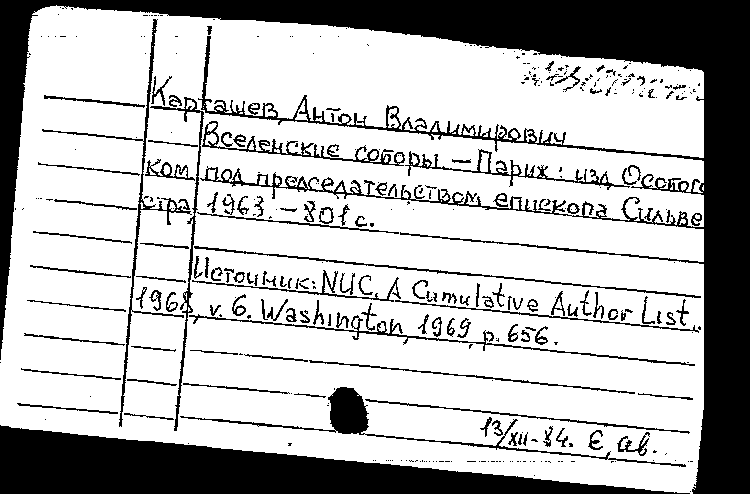 Карташев, Антон Владимирович
Вселенские соборы – Париж: изд Особого
ком под председательством епископа Сильве
стра, 1963. – 801 с.
Источник: NUC. A Cumulative Author List..
1968, v. 6. Washington, 1969, p. 656.
13/XII-84. Є, ав.